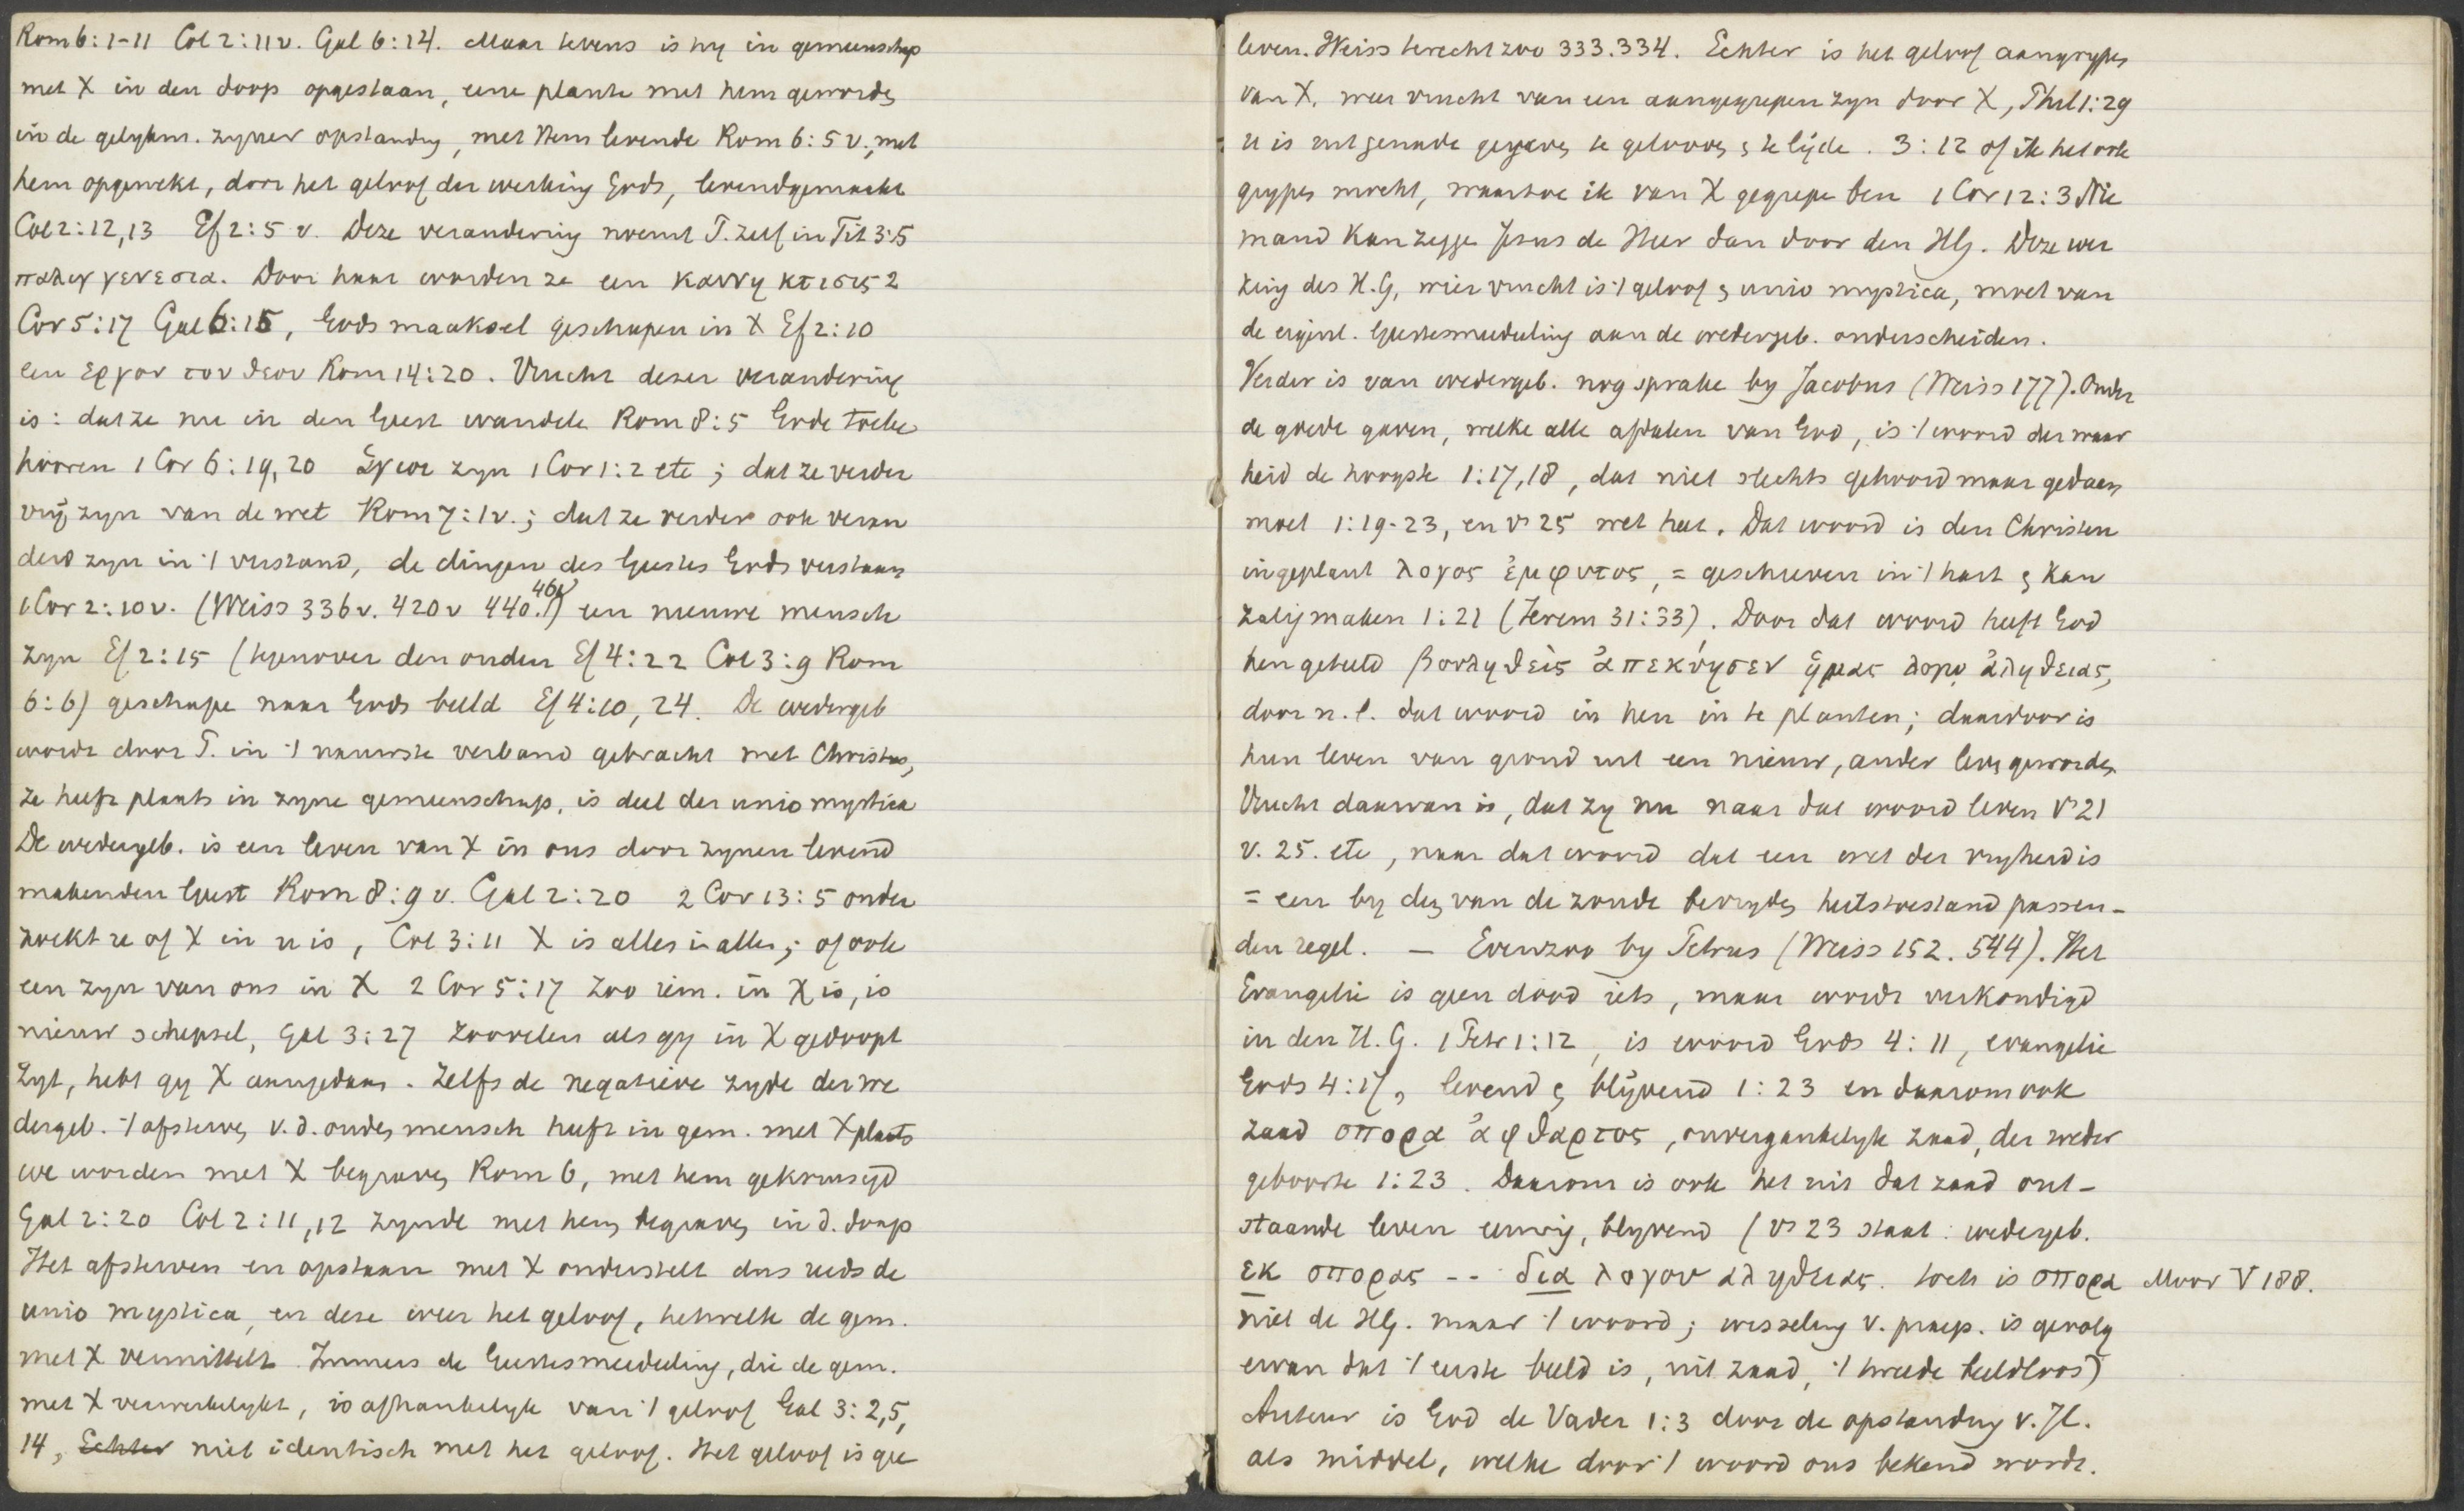 Rom 6:1-11 Col 2:11v. Gal 6:14. Maar tevens is hy in gemeenschap
met X in den doop opgestaan, eene plante met hem geworden
in de gelykm. zyner opstanding, met Hem levende Rom 6:5v., met
hem opgewekt, door het geloof der werking Gods, levendgemaakt
Col 2:12,13 Ef 2:5 v. Deze verandering noemt P. zelf in Tit 3:5
παλιγγενεσια. Door haar worden ze een καινη κτισις 2
Cor 5:17 Gal 6:15, Gods maaksel geschapen in X Ef 2:10
een εργον του θεου Rom 14:20. Vrucht dezer verandering
is: dat ze nu in den Geest wandelen Rom 8:5 Gode toebe
hooren 1 Cor 6:19,20 ἁγιοι zyn 1 Cor 1:2 etc; dat ze verder
vrij zyn van de wet Rom 7:1v.; dat ze verder ook veran
derd zyn in 't verstand, de dingen des Geestes Gods verstaan
1 Cor 2:10v. (Weiss 336v. 420v 440. 461v) een nieuwe mensch
zyn Ef 2:15 (tegenover den ouden Ef 4:22 Col 3:9 Rom
6:6) geschapen naar Gods beeld Ef 4:10, 24. De wedergeb
wordt door P. in 't nauwste verband gebracht met Christus,
ze heeft plaats in zyne gemeenschap, is deel der unio mystica
De wedergeb. is een leven van X in ons door zynen levend
makenden Geest Rom 8:9v. Gal 2:20 2 Cor 13:5 onder
zoekt ze of X in u is, Col 3:11 X is alles in allen; of ook
een zyn van ons in X 2 Cor 5:17 Zoo iem. in X is, is
nieuw schepsel, Gal 3:27 zoovelen als gy in X gedoopt
zyt, hebt gy X aangedaan. Zelfs de negatieve zyde der we
dergeb. 't afsterven v.d. ouden mensch heeft in gem. met X plaats
we worden met X begraven Rom 6, met hem gekruisigd
Gal 2:20 Col 2:11,12 zynde met hem begraven in d. doop
Het afsterven en opstaan met X onderstelt dus reeds de
unio mystica, en deze weer het geloof, hetwelk de gem.
met X vermittelt. Immers de Geestesmededeeling, die de gem.
met X verwerkelykt, is afhankelyk van 't geloof Gal 3:2,5,
14, Echter niet identisch met het geloof. Het geloof is gee
leven. Weiss terecht zoo 333.334. Echter is het geloof aangrypen
van X. weer vrucht van een aangegrepen zyn door X, Phil 1:29
u is uit genade gegeven te gelooven & te lijden. 3:12 of ik het ook
grypen mocht, waartoe ik van X gegrepen ben 1 Cor 12:3 Nie
mand kan zeggen Jesus de Heer dan door den HG. Deze wer
king des H.G, wier vrucht is 't geloof & unio mystica, moet van
de eigenl. Geestesmededeeling aan de wedergeb. onderscheiden.
Verder is van wedergeb. nog sprake by Jacobus (Weiss 177). Onder
de goede gaven, welke alle afdalen van God, is 't woord der waar
heid de hoogste 1:17,18, dat niet slechts gehoord maar gedaan
moet 1:19-23, en vs 25 wet heet. Dat woord is den Christen
ingeplant λογος ἐμφυτος, = geschreven in 't hart & kan
zalig maken 1:21 (Jerem 31:33). Door dat woord heeft God
hen gebaard βουληθεὶς ἀπεκύησεν ἡμας λογῳ ἀληθειας,
door n.l. dat woord in hen in te planten; daardoor is
hun leven van grond uit een nieuw, ander leven geworden
Vrucht daarvan is, dat zy nu naar dat woord leven vs 21
v. 25. etc, naar dat woord dat een wet der vryheid is
= een by den van de zonde bevryden heilstoestand passen-
den regel. — Evenzoo by Petrus (Weiss 152. 544). Het
Evangelie is geen dood iets, maar wordt verkondigd
in den H.G. 1 Petr 1:12, is woord Gods 4:11, evangelie
Gods 4:17, levend & blijvend 1:23 en daarom ook
zaad σπορα ἀφθαρτος, onvergankelyk zaad, der weder
geboorte 1:23. Daarom is ook het uit dat zaad ont-
staande leven eeuwig, blyvend (vs 23 staat: wedergeb.
εκ σπορας -- δια λογου αληθειας. toch is σπορα Moor V 188.
niet de HG. maar 't woord; wisseling v. praep. is gevolg
ervan dat 't eerste beeld is, uit zaad, 't tweede beeldloos)
Auteur is God de Vader 1:3 door de opstanding v. JC.
als middel, welke door 't woord ons bekend wordt.